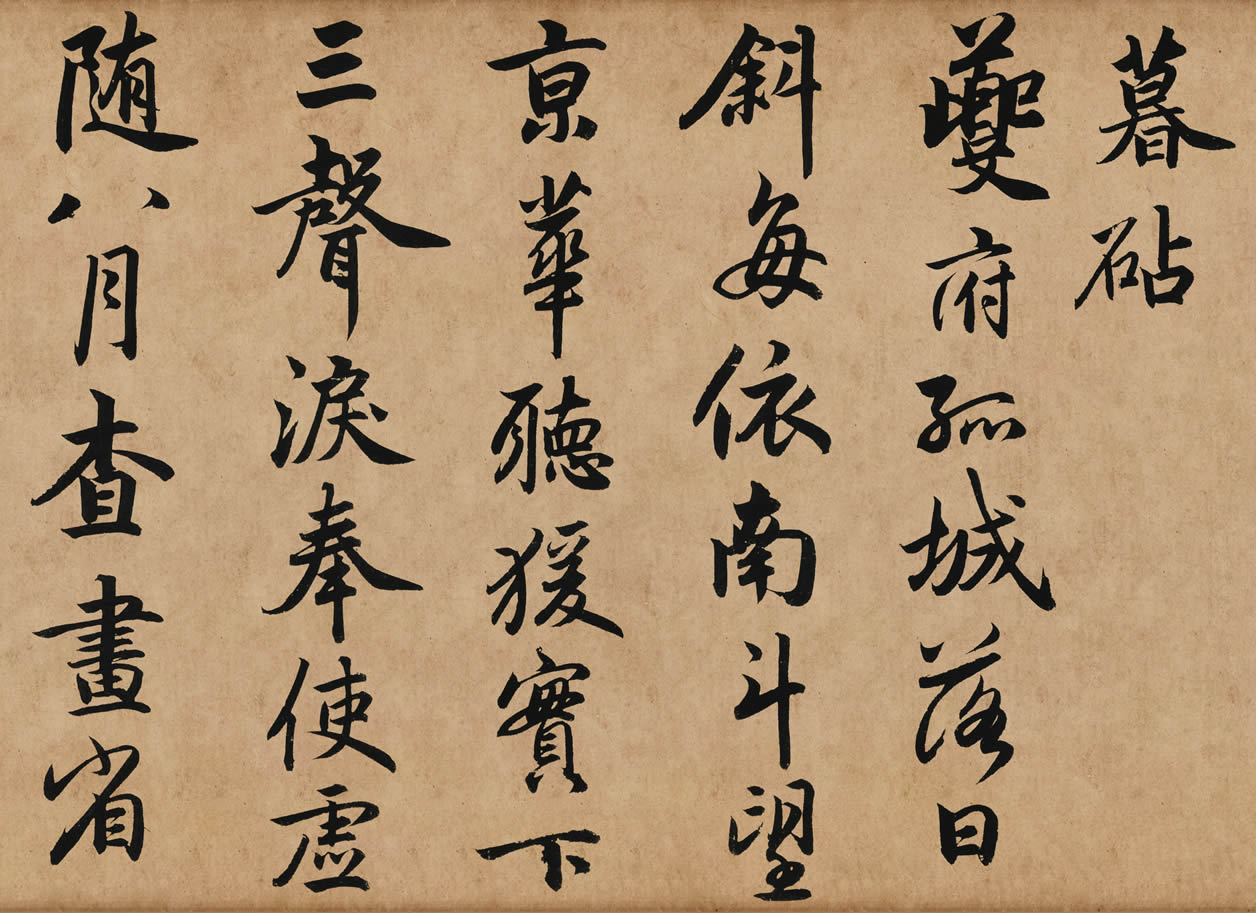 暮砧
夔府孤城落日
斜每依南斗望
京華聽猨實下
三聲淚奉使虛
隨八月查畫省